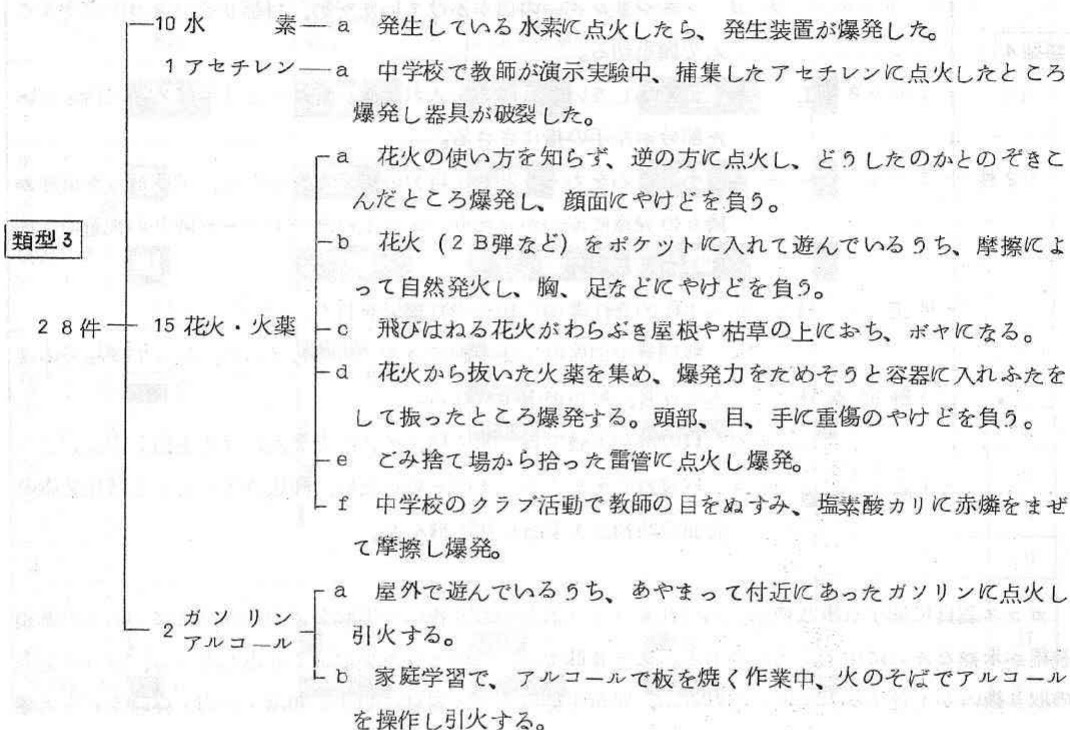 10 水素 — a 発生している水素に点火したら、発生装置が爆発した。
1 アセチレン — a 中学校で教師が演示実験中、捕集したアセチレンに点火したところ
爆発し器具が破裂した。
a 花火の使い方を知らず、逆の方に点火し、どうしたのかとのぞきこ
んだところ爆発し、顔面にやけどを負う。
類型3
b 花火(2B弾など)をポケットに入れて遊んでいるうち、摩擦によ
って自然発火し、胸、足などにやけどを負う。
28件 — 15 花火・火薬
c 飛びはねる花火がわらぶき屋根や枯草の上におち、ボヤになる。
d 花火から抜いた火薬を集め、爆発力をためそうと容器に入れふたを
して振ったところ爆発する。頭部、目、手に重傷のやけどを負う。
e ごみ捨て場から拾った雷管に点火し爆発。
f 中学校のクラブ活動で教師の目をぬすみ、塩素酸カリに赤燐をまぜ
て摩擦し爆発。
2 ガソリン
アルコール
a 屋外で遊んでいるうち、あやまって付近にあったガソリンに点火し
引火する。
b 家庭学習で、アルコールで板を焼く作業中、火のそばでアルコール
を操作し引火する。